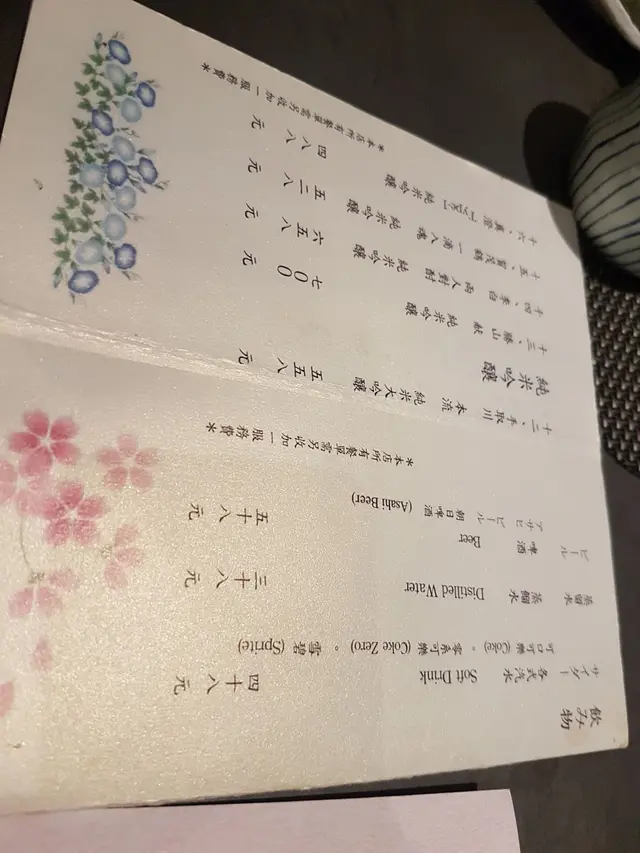 飲み物
サイダー 各式汽水 Soft Drink 四十八元
可口可樂 (Coke) 。零系可樂 (Coke Zero) 。雪碧 (Sprite)
蒸留水 蒸餾水 Distilled Water 三十八元
ビール 啤酒 Beer
アサヒビール 朝日啤酒 (Asahi Beer) 五十八元
*本店所有餐單需另收加一服務費*
十二、手取川 本流 純米大吟釀 五五八元
純米吟釀
十三、勝山 献 純米吟釀 七00元
十四、李白 兩人對酌 純米吟釀 六五八元
十五、賀茂鶴 一滴入魂 純米吟釀 五二八元
十六、真澄 純米吟釀 四八八元
*本店所有餐單需另收加一服務費*